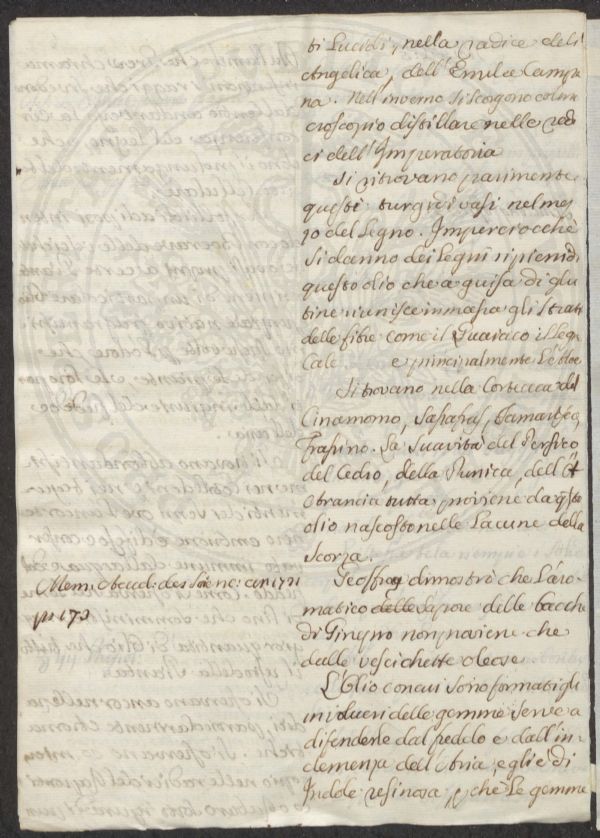 ti Lucidi, nella radice dell'
Angelica, dell' Enula Campa
na. Nell' inverno si scorgono col mi
croscopio distillare nelle radi
ci dell' Imperatoria
Si ritrovano parimente
questi turgidi vasi nel mez
zo del Legno. Imperciocchè
si danno dei Legni ripieni di
quest'olio che a guisa di glu
tine unisce in massa gli strati
delle fibre come il Guaiaco il
cale, e principalmente L'aloe
Si trovano nella Corteccia del
Cinamomo, Sasafras, Tamarisco,
Frasino. La suavità del Persico
del Cedro, della Punica, dell' A
rancia tutta proviene da qsto
olio nascosto nelle Lacune della
Scorza.
Mem: Acad: des Scienc: an 1721
p. 173
Geoffroy dimostrò che L'aro-
matico sapore delle bacche
di Ginepro non proviene che
dalle vescichette oleose
L'Olio con cui sono formati gli
involucri delle gemme serve a
difenderle dal freddo e dall' in-
clemenza dell' Aria, egli è di
Indole resinosa, pchè Le gemme